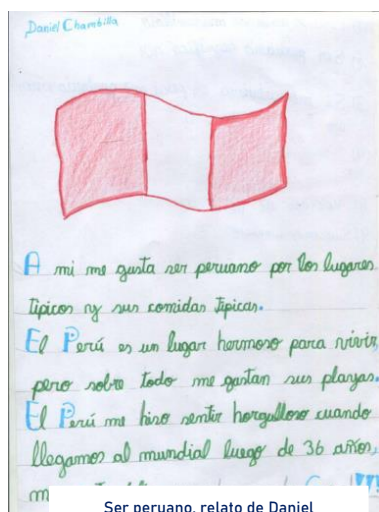 Daniel Chambilla
A mi me gusta ser peruano por los lugares
tipicos y sus comidas tipicas.
El Perú es un lugar hermoso para vivir,
pero sobre todo me gustan sus playas.
El Perú me hiso sentir horgulloso cuando
llegamos al mundial luego de 36 años,
Ser peruano, relato de Daniel